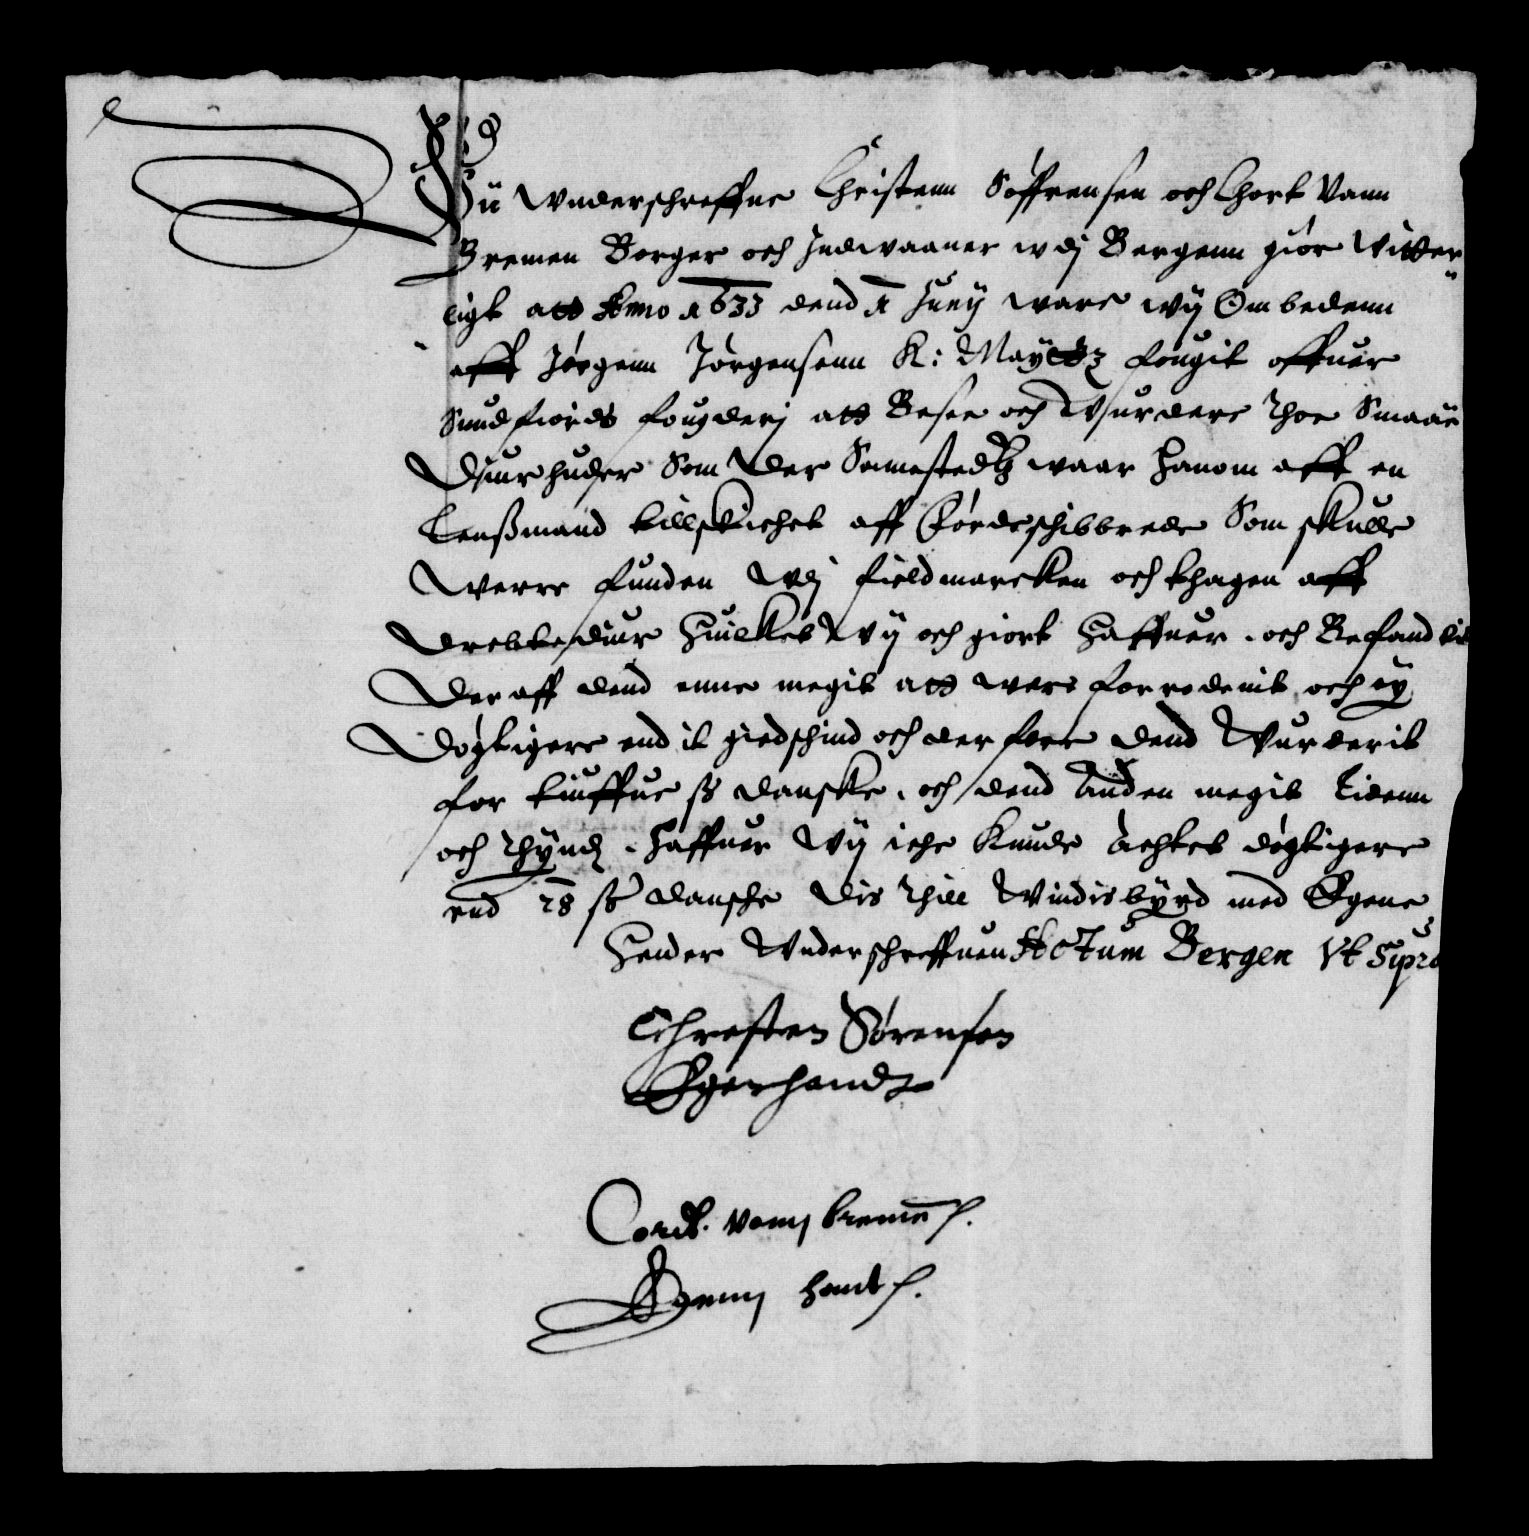 Wii Wnderschreffne Christenn Søffrensen och Chort Vann
Bremen Borger och Jndwaaner wdj Bergenn giør witter
ligt att Anno 1633 dend 1 Junij ware wij Ombedenn
aff Jørgenn Jørgensenn K: Maÿttz fougit offuer
Sundfiords fougderj att Besee och Wurdere thoe Smaae
Diurhuder Som der Samestedtz waar hanom aff en
Lenßmand tillskichet affFørdeschibbrede Som skulle
Werre funden Wdj fieldmarcken och thagen aff
diur Huilket Wij och giort haffuer, och Befand
Der aff dend enne megit att were forrodenit och ej
Døgtigere end it giedschind och derfore dend Wurderit
for tiuffue ß danske, och dend Anden megit Lidenn
och thÿnd, haffuer Wij iche Kunde Achtet døgtigere
end 28 ß dansche Dis thill Windisbÿrd med Egene
Hender Wnderschreffuen Actum Bergen Vt Supra
Chresten Sørensen
Egenhandt
Cordt vonn bremen
Egenn hant